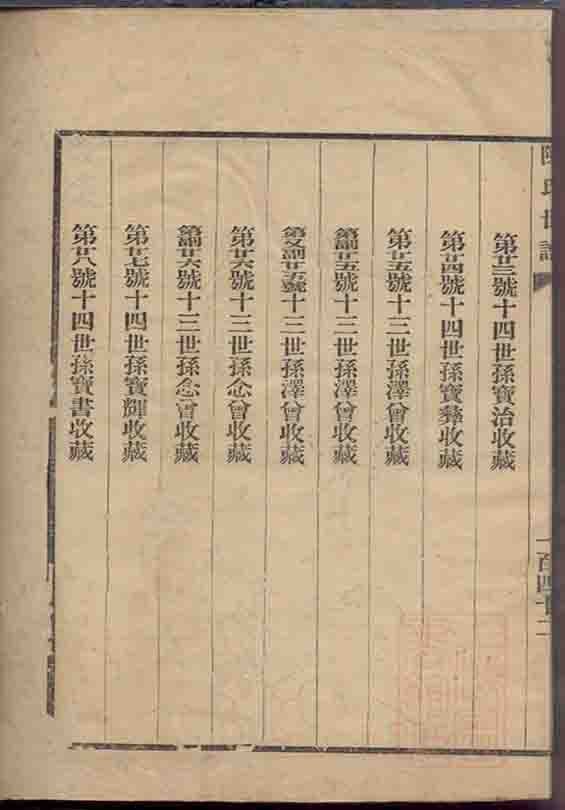 陳氏世譜
一百四十二
第廿三號十四世孫寶治收藏
第廿四號十四世孫寶彝收藏
第廿五號十三世孫澤曾收藏
第副廿五號十三世孫澤曾收藏
第又副廿五號十三世孫澤曾收藏
第廿六號十三世孫念曾收藏
第副廿六號十三世孫念曾收藏
第廿七號十四世孫寶輝收藏
第廿八號十四世孫寶書收藏